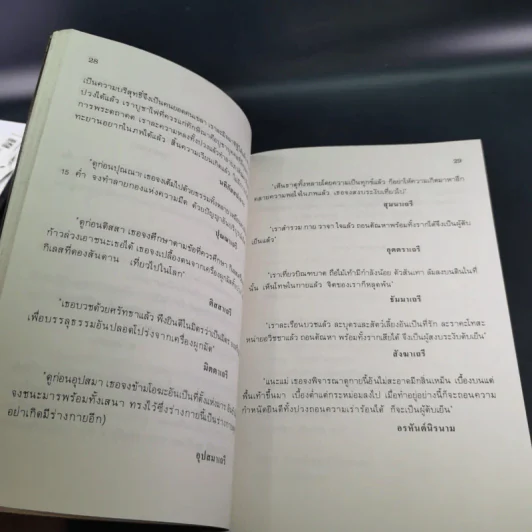 28
เป็นความบริสุทธิ์จึงเป็นคนยอดคนเธอ เรา
ปวงได้แล้ว เราบูชาไฟที่ควรแก่ทักษิณา
การพระตถาคต เราละความหลงทั้งปวงแล้ว
ทะยานอยากในภพได้แล้ว สิ้นความเวียนเกิดแล้ว
"ดูก่อนปุณณา เธอจงเต็มไปด้วยธรรม
15 ค่ำ จงทำลายกองแห่งความมืด ด้วยปัญญา
"ดูก่อนติสสา เธอจงศึกษาตามข้อที่ควรศึกษา
ก้าวล่วงเอาชนะเธอได้ เธอจงเปลื้องตนจากเครื่องผูกมัด
กิเลสที่ดองสันดาน เที่ยวไปในโลก"
ติสสาเถรี
"เธอบวชด้วยศรัทธาแล้ว พึงยินดีในมิตร
เพื่อบรรลุธรรมอันปลอดโปร่งจากเครื่องผูกมัด"
มิตตาเถรี
"ดูก่อนอุปสมา เธอจงข้ามโอฆะอันเป็นที่ตั้งแห่งมาร
จงชนะมารพร้อมทั้งเสนา ทรงไว้ซึ่งร่างกายนี้เป็นร่าง
อย่าเกิดมีร่างกายอีก)
อุปสมาเถรี
29
"เห็นธาตุทั้งหลายโดยความเป็นทุกข์แล้ว ก็อย่าให้ความเกิดมาหาอีก
คลายความพอใจในภพแล้ว เธอจงสงบระงับเที่ยวไป"
สุมนาเถรี
"เราสำรวม กาย วาจา ใจแล้ว ถอนตัณหาพร้อมทั้งรากได้จึงเป็นผู้ดับ
เย็นแล้ว"
อุตตราเถรี
"เราเที่ยวบิณฑบาต ถือไม้เท้ามีกำลังน้อย ตัวสั่นเทา ล้มลงบนดินในที่
นั้น เห็นโทษในกายแล้ว จิตของเราก็หลุดพ้น"
ธัมมาเถรี
"เราละเรือนบวชแล้ว ละบุตรและสัตว์เลี้ยงอันเป็นที่รัก ละราคะโทสะ
หน่ายอวิชชาแล้ว ถอนตัณหา พร้อมทั้งรากเสียได้ จึงเป็นผู้สงบระงับดับเย็น"
สังฆาเถรี
"แนะแม่ เธอจงพิจารณาดูกายนี้อันไม่สะอาดมีกลิ่นเหม็น เบื้องบนแต่
พื้นเท้าขึ้นมา เบื้องต่ำแต่กระหม่อมลงไป เมื่อทำอยู่อย่างนี้ก็จะถอนความ
กำหนัดยินดีทั้งปวงถอนความเร่าร้อนได้ ก็จะเป็นผู้ดับเย็น"
อรหันต์นิรนาม